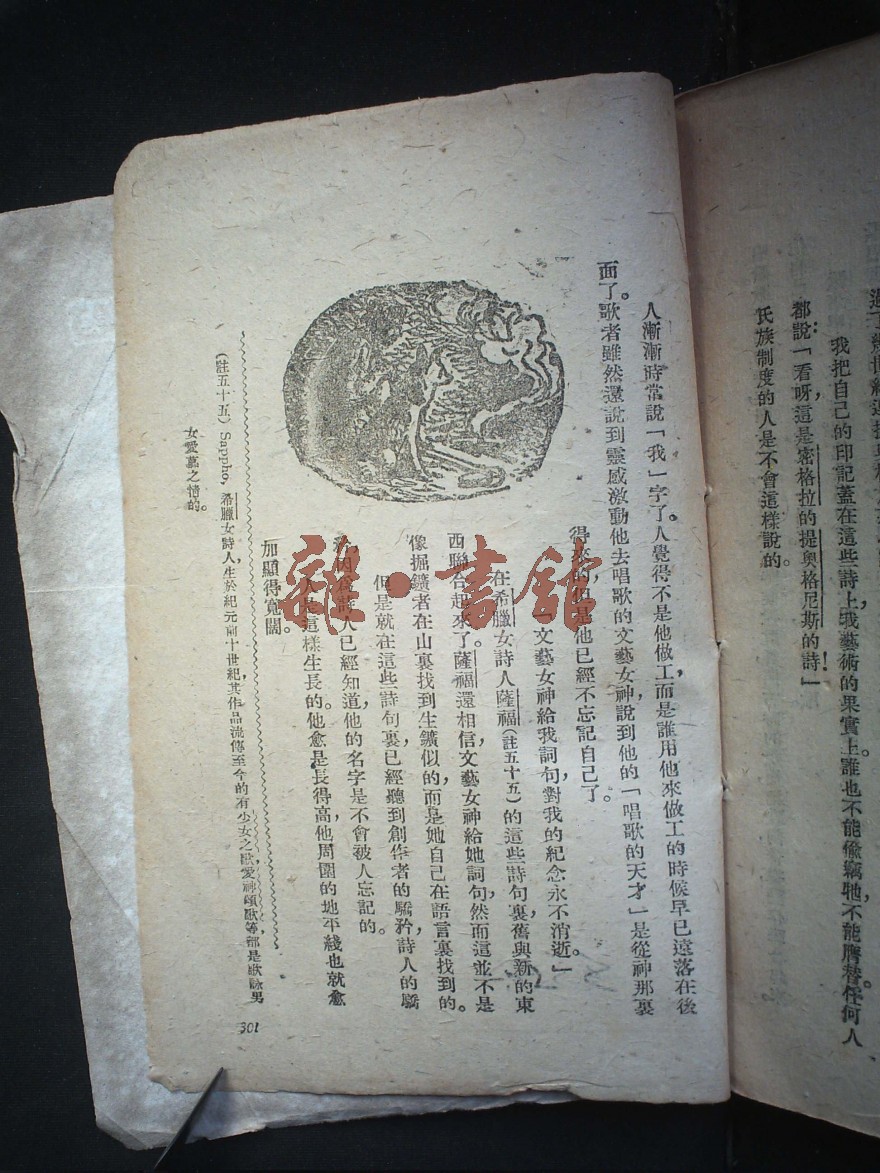 我把自己的印記蓋在這些詩上，我藝術的果實上誰也不能偸竊牠，不能贋替。任何人
都說：「看呀，這是密格拉的提奧格尼斯的詩！」
氏族制度的人是不會這樣說的。
人漸漸時常說「我」字了。人覺得不是他做工，而是誰用他來做工的時候早已遠落在後
面了。歌者雖然還說到靈感激動他去唱歌的文藝女神，說到他的「唱歌的天才」是從神那裏
得來的，但是他已經不忘記自己了。
文藝女神給我詞句，對我的紀念永不消逝。」
在希臘女詩人薩福（註五十五）的這些詩句裏，舊與新的東
西聯合起來了。薩福還相信，文藝女神給她詞句，然而這並不是
像掘鑛者在山裏找到生鑛似的，而是她自己在語言裏找到的。
但是就在這些詩句裏已經聽到創作者的驕矜，詩人的驕
因爲詩人已經知道，他的名字是不會被人忘記的。
人是這樣生長的。他愈是長得高，他周圍的地平綫也就愈
加顯得寬闊。
（註五十五）Sappho，希臘女詩人，生於紀元前十世紀，其作品流傳至今的有少女之歌，愛神頌歌等，都是歌詠男
女愛慕之情的。
301
雜·書館